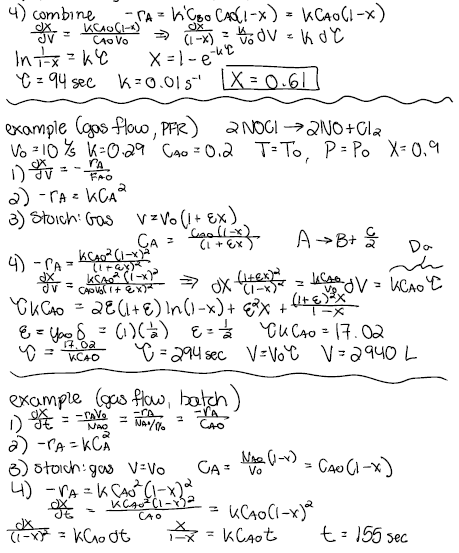 4) combine -rA = k'CB0 CA0(1-x) = kCA0(1-x)
dx/dV = kCA0(1-x)/CA0V0 ⇒ dx/(1-x) = k/V0 dV = k dτ
ln 1/1-x = kτ X = 1-e^-kτ
τ = 94 sec k = 0.01 s⁻¹ X = 0.61
example (gas flow, PFR) 2NOCl → 2NO + Cl2
V0 = 10 L/s k = 0.29 CA0 = 0.2 T = T0, P = P0 X = 0.9
1) dx/dV = -rA/FA0
2) -rA = kCA²
3) Stoich: Gas V = V0(1+εx)
CA = CA0(1-x)/(1+εx) A → B + C/2
Da
4) -rA = kCA0²(1-x)²/(1+εx)²
dx/dV = kCA0²(1-x)²/CA0V0(1+εx)² ⇒ dx (1+εx)²/(1-x)² = kCA0/V0 dV = kCA0 τ
τkCA0 = 2ε(1+ε)ln(1-x) + ε²x + (1+ε)²x/1-x
ε = yA0 δ = (1)(1/2) ε = 1/2 τkCA0 = 17.02
τ = 17.02/kCA0 τ = 294 sec V = V0τ V = 2940 L
example (gas flow, batch)
1) dx/dt = -rAV0/NA0 = -rA/NA0/V0 = -rA/CA0
2) -rA = kCA²
3) Stoich: gas V = V0 CA = NA0/V0 (1-x) = CA0(1-x)
4) -rA = kCA0²(1-x)²
dx/dt = kCA0²(1-x)²/CA0 = kCA0(1-x)²
dx/(1-x)² = kCA0 dt x/1-x = kCA0t t = 155 sec